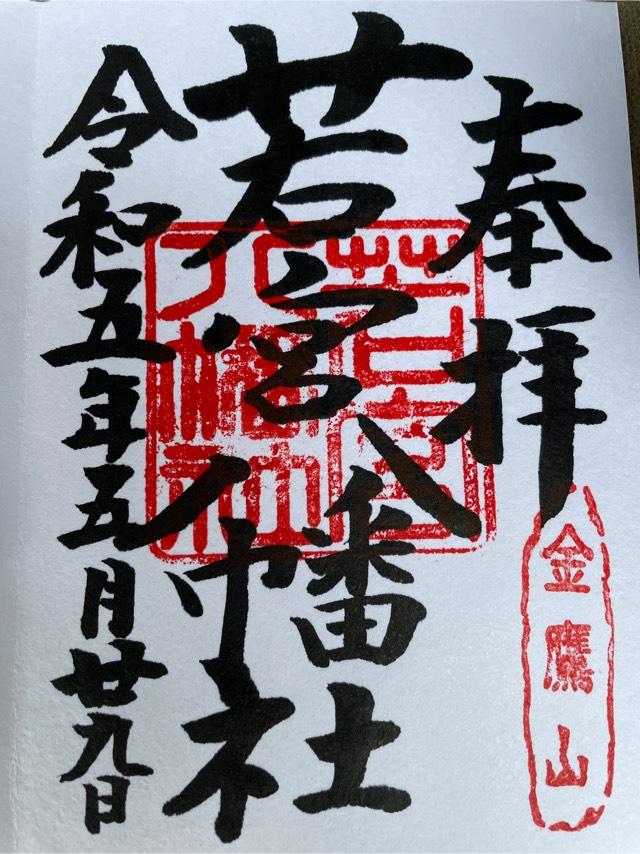 奉拝
金鷹山
若宮八幡社
若宮八幡社
令和五年五月廿九日